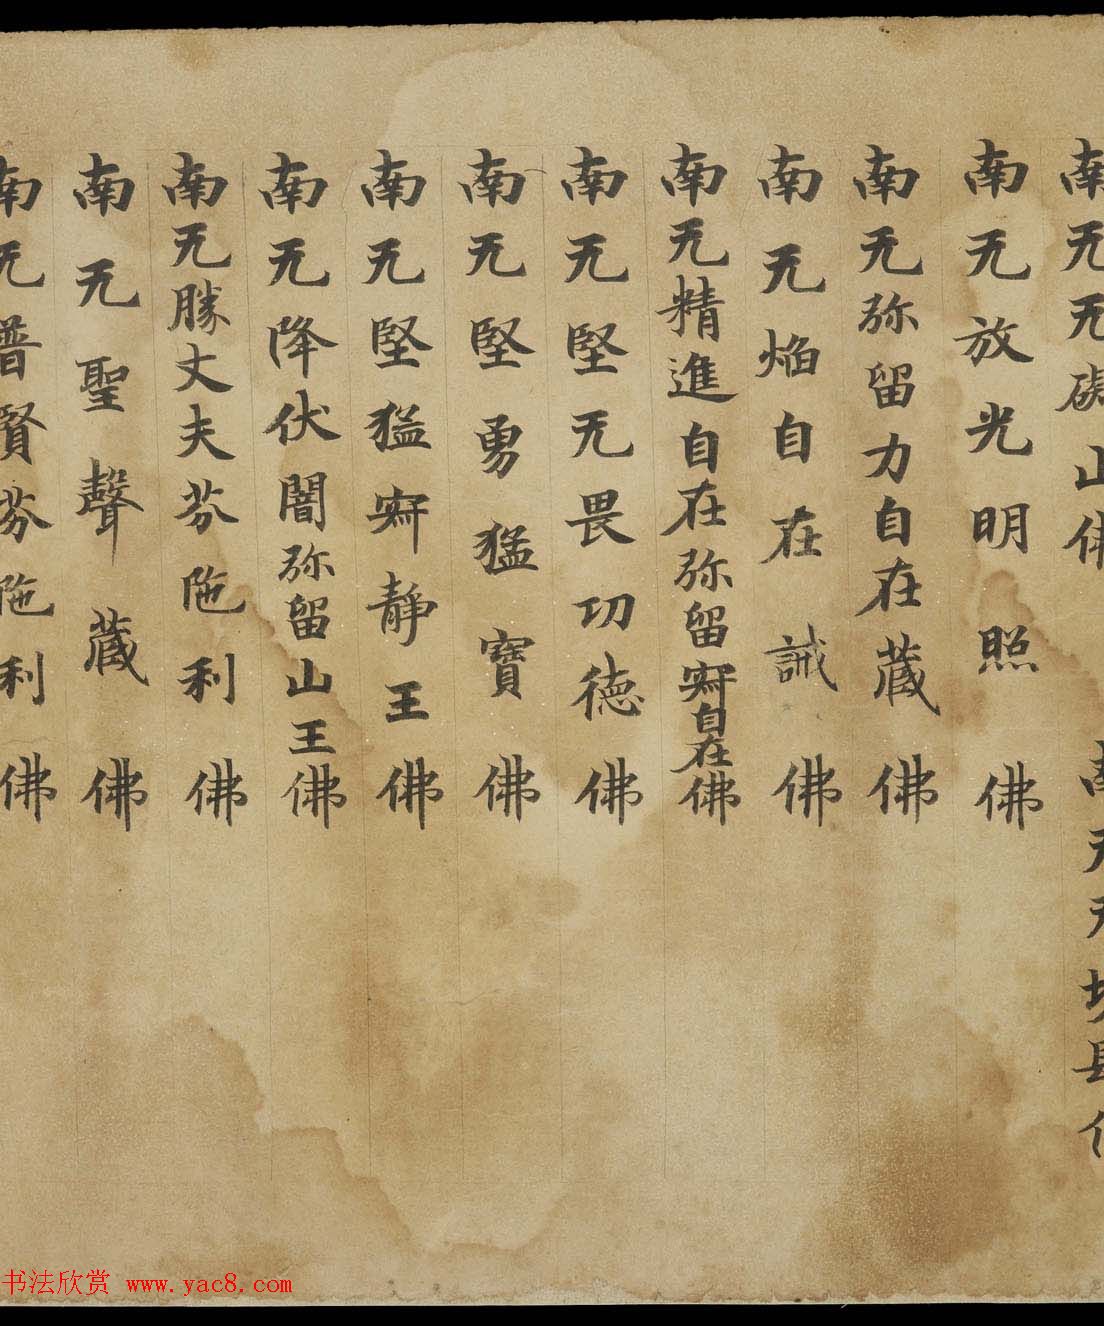 南无无礙山佛 南无无
南无放光明照佛
南无弥留力自在藏佛
南无焰自在誡佛
南无精進自在弥留寂自在佛
南无堅无畏功德佛
南无堅勇猛寶佛
南无堅猛寂静王佛
南无降伏闇弥留山王佛
南无勝丈夫芬陁利佛
南无聖聲藏佛
南无普賢芬陁利佛
书法欣赏 www.yac8.com